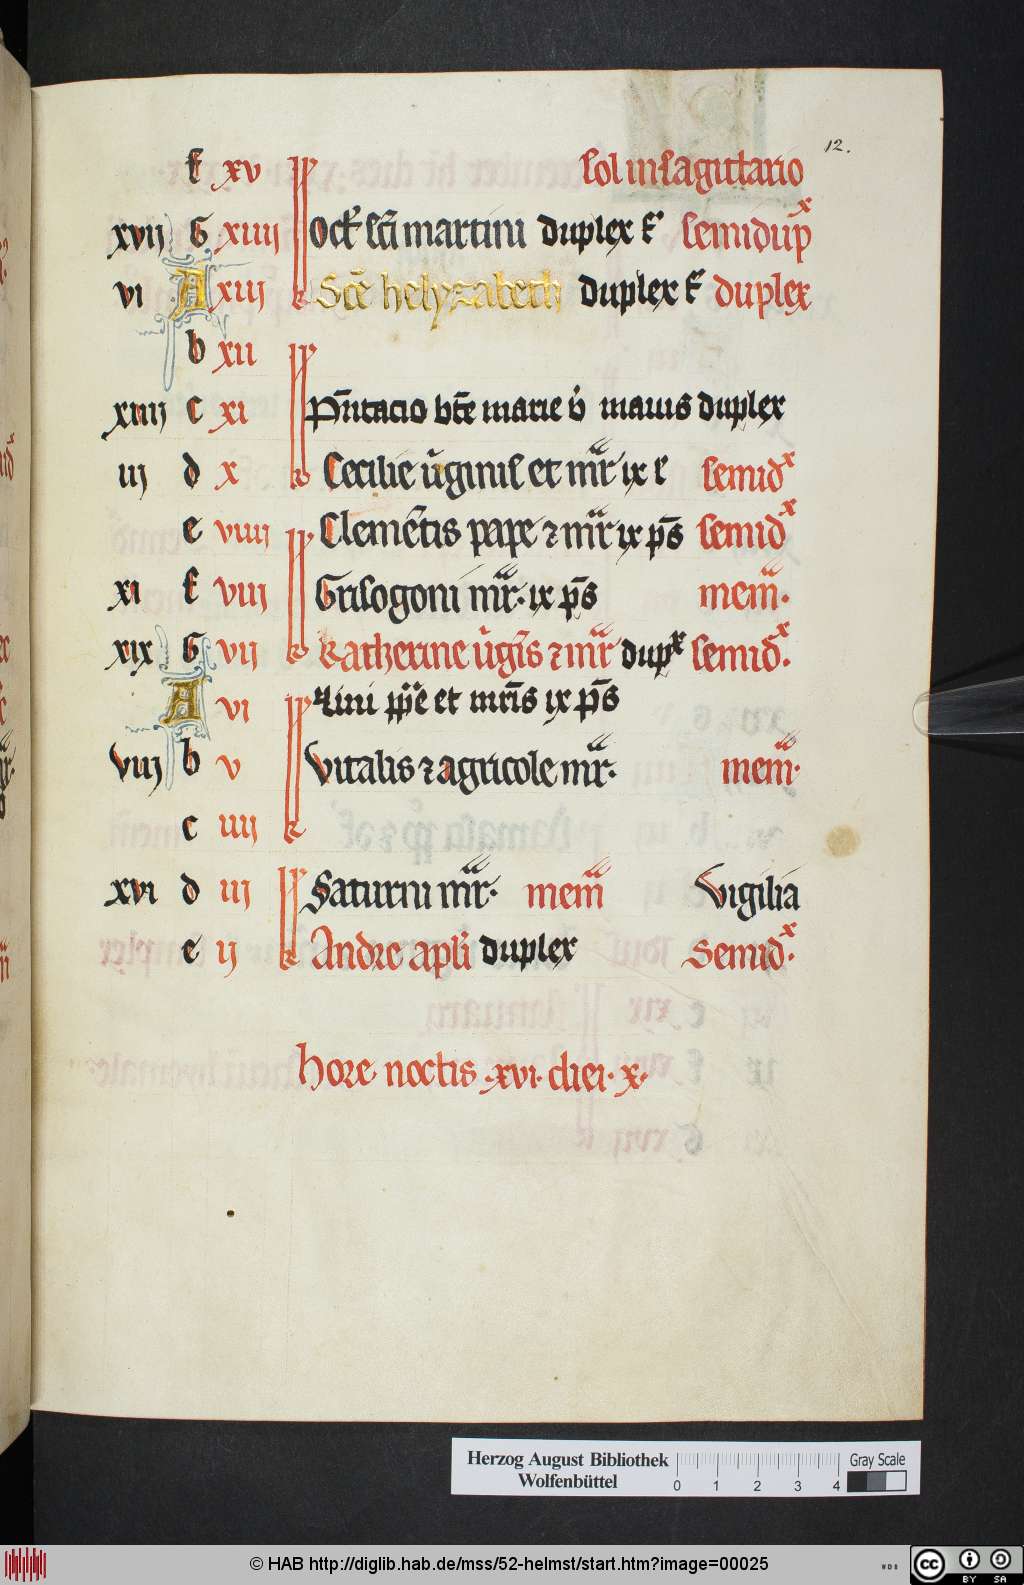 12.
f xv kl sol in sagittario
xvij G xiiij Oct̄ sc̄i martini duplex f᷑ semidupx
vi A xiij kl Sc̄e helyzabeth duplex f᷑ duplex
b xij kl
xiiij c xi kl p̄ntacio bt̄e marie v̓ ī mauis duplex
iij d x kl Cecilie v̓ginis et mr̄ ix l semidx
e viiij kl Clemētis pape ⁊ mr̄ ix ps̄ semidx
xi f viij kl Grisogoni mr̄· ix ps̄ mem̄·
xix G vij kl katherine v̓gīs ⁊ mr̄ dupx semidx·
A vi kl Lini pp̄e et mr̄is ix ps̄
viij b v kl Vitalis ⁊ agricole mr̄· mem̄·
c iiij kl
xvi d iij kl Saturni mr̄· mem̄ Vigilia
e ij kl Andree apl̄i duplex Semidx·
hore noctis ·xvi· diei· x·
Herzog August Bibliothek
Wolfenbüttel
0 1 2 3 4
Gray Scale
© HAB http://diglib.hab.de/mss/52-helmst/start.htm?image=00025
WDB
cc BY SA